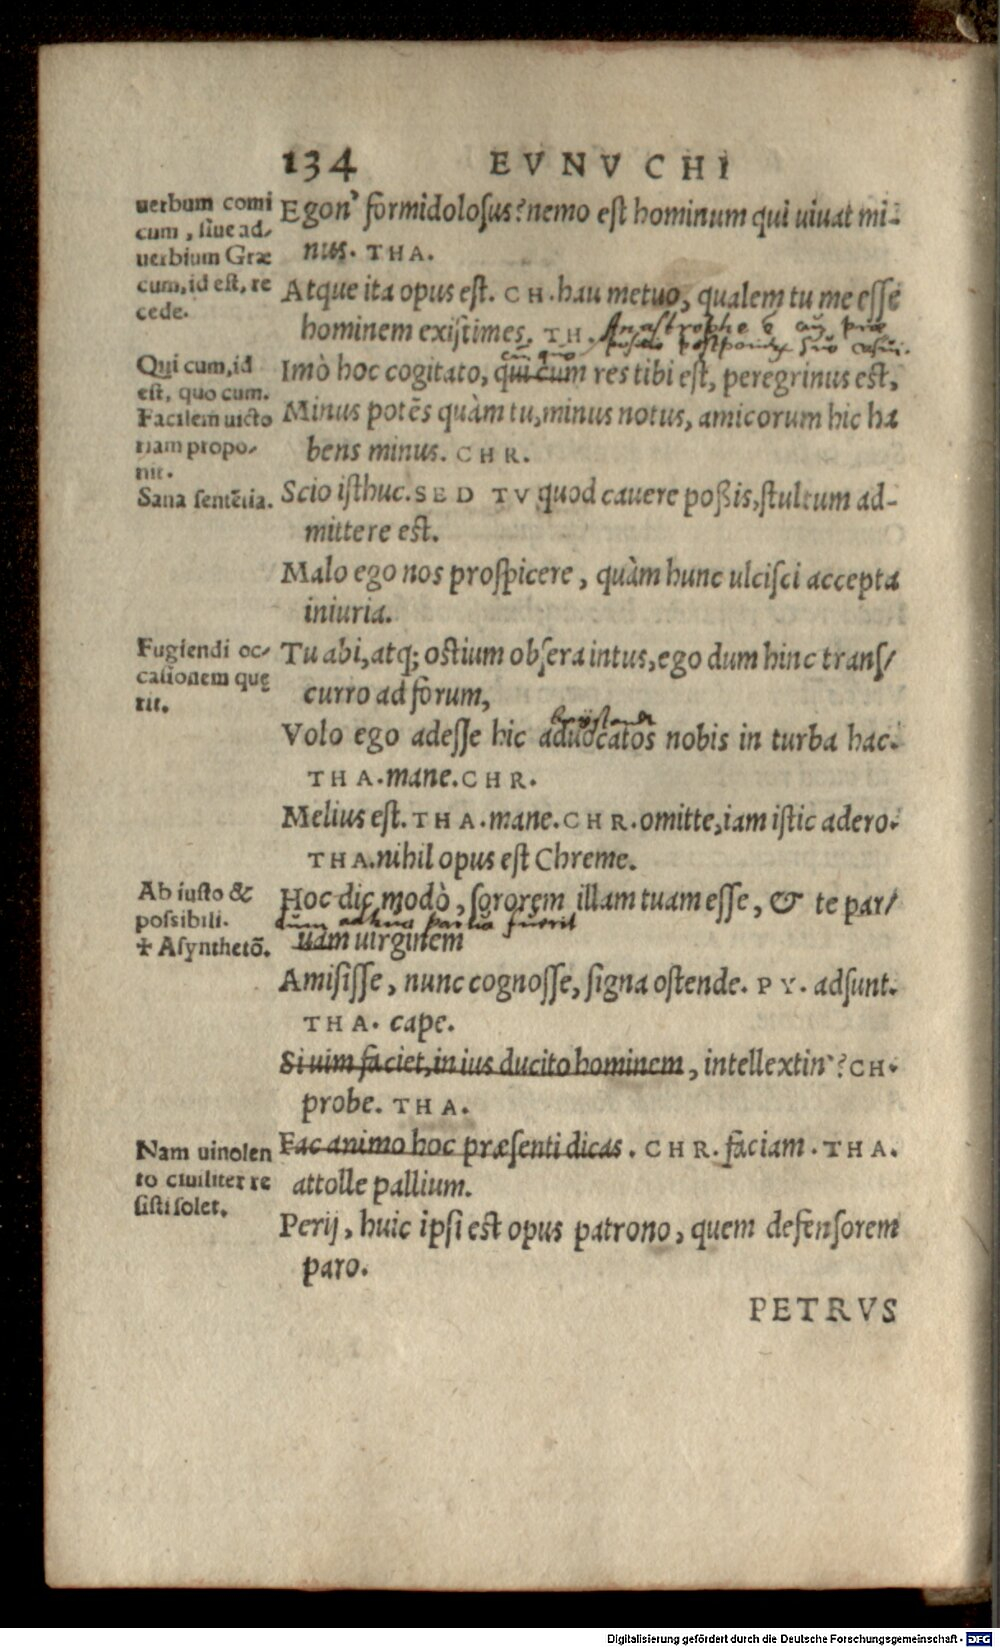 134 EVNVCHI
uerbum comi
cum, siue ad⸗
uerbium Græ
cum, id est, re
cede.
Egon' formidolosus? nemo est hominum qui uiuat mi-
nus. THA.
Atque ita opus est. CH. hau metuo, qualem tu me esse
hominem existimes. TH.
Anastrophe e
postponit suo casui.
cū quo
Qui cum, id
est, quo cum.
Facilem uicto
riam propo⸗
nit.
Sana sentētia.
Imò hoc cogitato, qui cum res tibi est, peregrinus est,
Minus potēs quàm tu, minus notus, amicorum hic ha
bens minus. CHR.
Scio isthuc. SED TV quod cauere poßis, stultum ad-
mittere est.
Malo ego nos prospicere, quàm hunc ulcisci accepta
iniuria.
Fugiendi oc⸗
casionem quę
rit.
Tu abi, atq; ostium obsera intus, ego dum hinc trans⸗
curro ad forum,
Volo ego adesse hic aduocatos nobis in turba hac.
THA. mane. CHR.
Melius est. THA. mane. CHR. omitte, iam istic adero.
THA. nihil opus est Chreme.
Ab iusto &
possibili.
✢ Asynthetō.
Hoc dic modò, sororem illam tuam esse, & te par⸗
cum adhuc parua fuerit
uam uirginem
Amisisse, nunc cognosse, signa ostende. PY. adsunt.
THA. cape.
Si uim faciet, in ius ducito hominem, intellextin'? CH.
probe. THA.
Nam uinolen
to ciuiliter re
sisti solet.
Fac animo hoc præsenti dicas. CHR. faciam. THA.
attolle pallium.
Perij, huic ipsi est opus patrono, quem defensorem
paro.
PETRVS
Digitalisierung gefördert durch die Deutsche Forschungsgemeinschaft - DFG